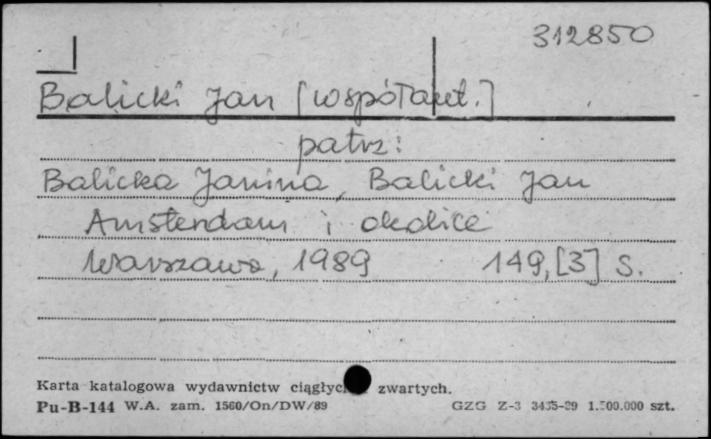 312850
Balicki Jan [współaut.]
patrz:
Balicka Janina, Balicki Jan
Amsterdam i okolice
Warszawa, 1989 149,[3] s.
Karta katalogowa wydawnictw zwartych.
Pu-B-144 W.A. zam. 1560/On/DW/89 GZG Z-3 1.500.000 szt.